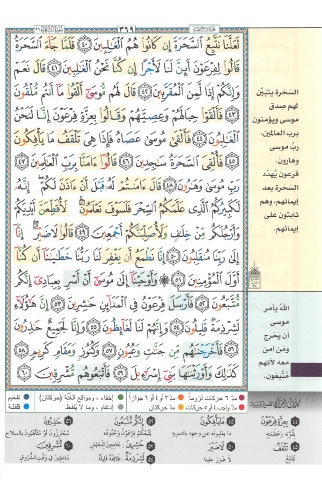 ٣٦٩
لَعَلَّنَا نَتَّبِعُ ٱلسَّحَرَةَ إِن كَانُوا۟ هُمُ ٱلْغَٰلِبِينَ ٤٠ فَلَمَّا جَآءَ ٱلسَّحَرَةُ
قَالُوا۟ لِفِرْعَوْنَ أَئِنَّ لَنَا لَأَجْرًا إِن كُنَّا نَحْنُ ٱلْغَٰلِبِينَ ٤١ قَالَ نَعَمْ
وَإِنَّكُمْ إِذًا لَّمِنَ ٱلْمُقَرَّبِينَ ٤٢ قَالَ لَهُم مُّوسَىٰٓ أَلْقُوا۟ مَآ أَنتُم مُّلْقُونَ
٤٣ فَأَلْقَوْا۟ حِبَالَهُمْ وَعِصِيَّهُمْ وَقَالُوا۟ بِعِزَّةِ فِرْعَوْنَ إِنَّا لَنَحْنُ
ٱلْغَٰلِبُونَ ٤٤ فَأَلْقَىٰ مُوسَىٰ عَصَاهُ فَإِذَا هِىَ تَلْقَفُ مَا يَأْفِكُونَ
٤٥ فَأُلْقِىَ ٱلسَّحَرَةُ سَٰجِدِينَ ٤٦ قَالُوٓا۟ ءَامَنَّا بِرَبِّ ٱلْعَٰلَمِينَ ٤٧
رَبِّ مُوسَىٰ وَهَٰرُونَ ٤٨ قَالَ ءَامَنتُمْ لَهُۥ قَبْلَ أَنْ ءَاذَنَ لَكُمْ ۖ إِنَّهُۥ
لَكَبِيرُكُمُ ٱلَّذِى عَلَّمَكُمُ ٱلسِّحْرَ فَلَسَوْفَ تَعْلَمُونَ ۚ لَأُقَطِّعَنَّ أَيْدِيَكُمْ
وَأَرْجُلَكُم مِّنْ خِلَٰفٍ وَلَأُصَلِّبَنَّكُمْ أَجْمَعِينَ ٤٩ قَالُوا۟ لَا ضَيْرَ ۖ إِنَّآ
إِلَىٰ رَبِّنَا مُنقَلِبُونَ ٥٠ إِنَّا نَطْمَعُ أَن يَغْفِرَ لَنَا رَبُّنَا خَطَٰيَٰنَآ أَن كُنَّآ
أَوَّلَ ٱلْمُؤْمِنِينَ ٥١ وَأَوْحَيْنَآ إِلَىٰ مُوسَىٰٓ أَنْ أَسْرِ بِعِبَادِىٓ إِنَّكُم
مُّتَّبَعُونَ ٥٢ فَأَرْسَلَ فِرْعَوْنُ فِى ٱلْمَدَآئِنِ حَٰشِرِينَ ٥٣ إِنَّ هَٰٓؤُلَآءِ
لَشِرْذِمَةٌ قَلِيلُونَ ٥٤ وَإِنَّهُمْ لَنَا لَغَآئِظُونَ ٥٥ وَإِنَّا لَجَمِيعٌ حَٰذِرُونَ
٥٦ فَأَخْرَجْنَٰهُم مِّن جَنَّٰتٍ وَعُيُونٍ ٥٧ وَكُنُوزٍ وَمَقَامٍ كَرِيمٍ ٥٨
كَذَٰلِكَ وَأَوْرَثْنَٰهَا بَنِىٓ إِسْرَٰٓءِيلَ ٥٩ فَأَتْبَعُوهُم مُّشْرِقِينَ ٦٠
السَّحَرة يتبيّن
لهم صدق
موسى ويؤمنون
برب العالمين،
ربّ موسى
وهارون.
فرعون يُهدّد
السحرة بعد
إيمانهم، وهم
ثابتون على
إيمانهم.
اللهُ يأمر
موسى
أن يخرج
ومن آمن
معه لأنهم
مُتّبعون.
مدّ ٦ حركات لزوماً
إخفاء، ومواقع الغُنَّة (حركتان)
تفخيم
مدّ حركتان
إدغام، وما لا يُلفَظ
قلقلة
بِعِزَّةِ فِرْعَوْنَ
مَا يَأْفِكُونَ
إِنَّكُم مُّتَّبَعُونَ
حَٰذِرُونَ
تَلْقَفُ
لَا ضَيْرَ
لَشِرْذِمَةٌ
مُّشْرِقِينَ